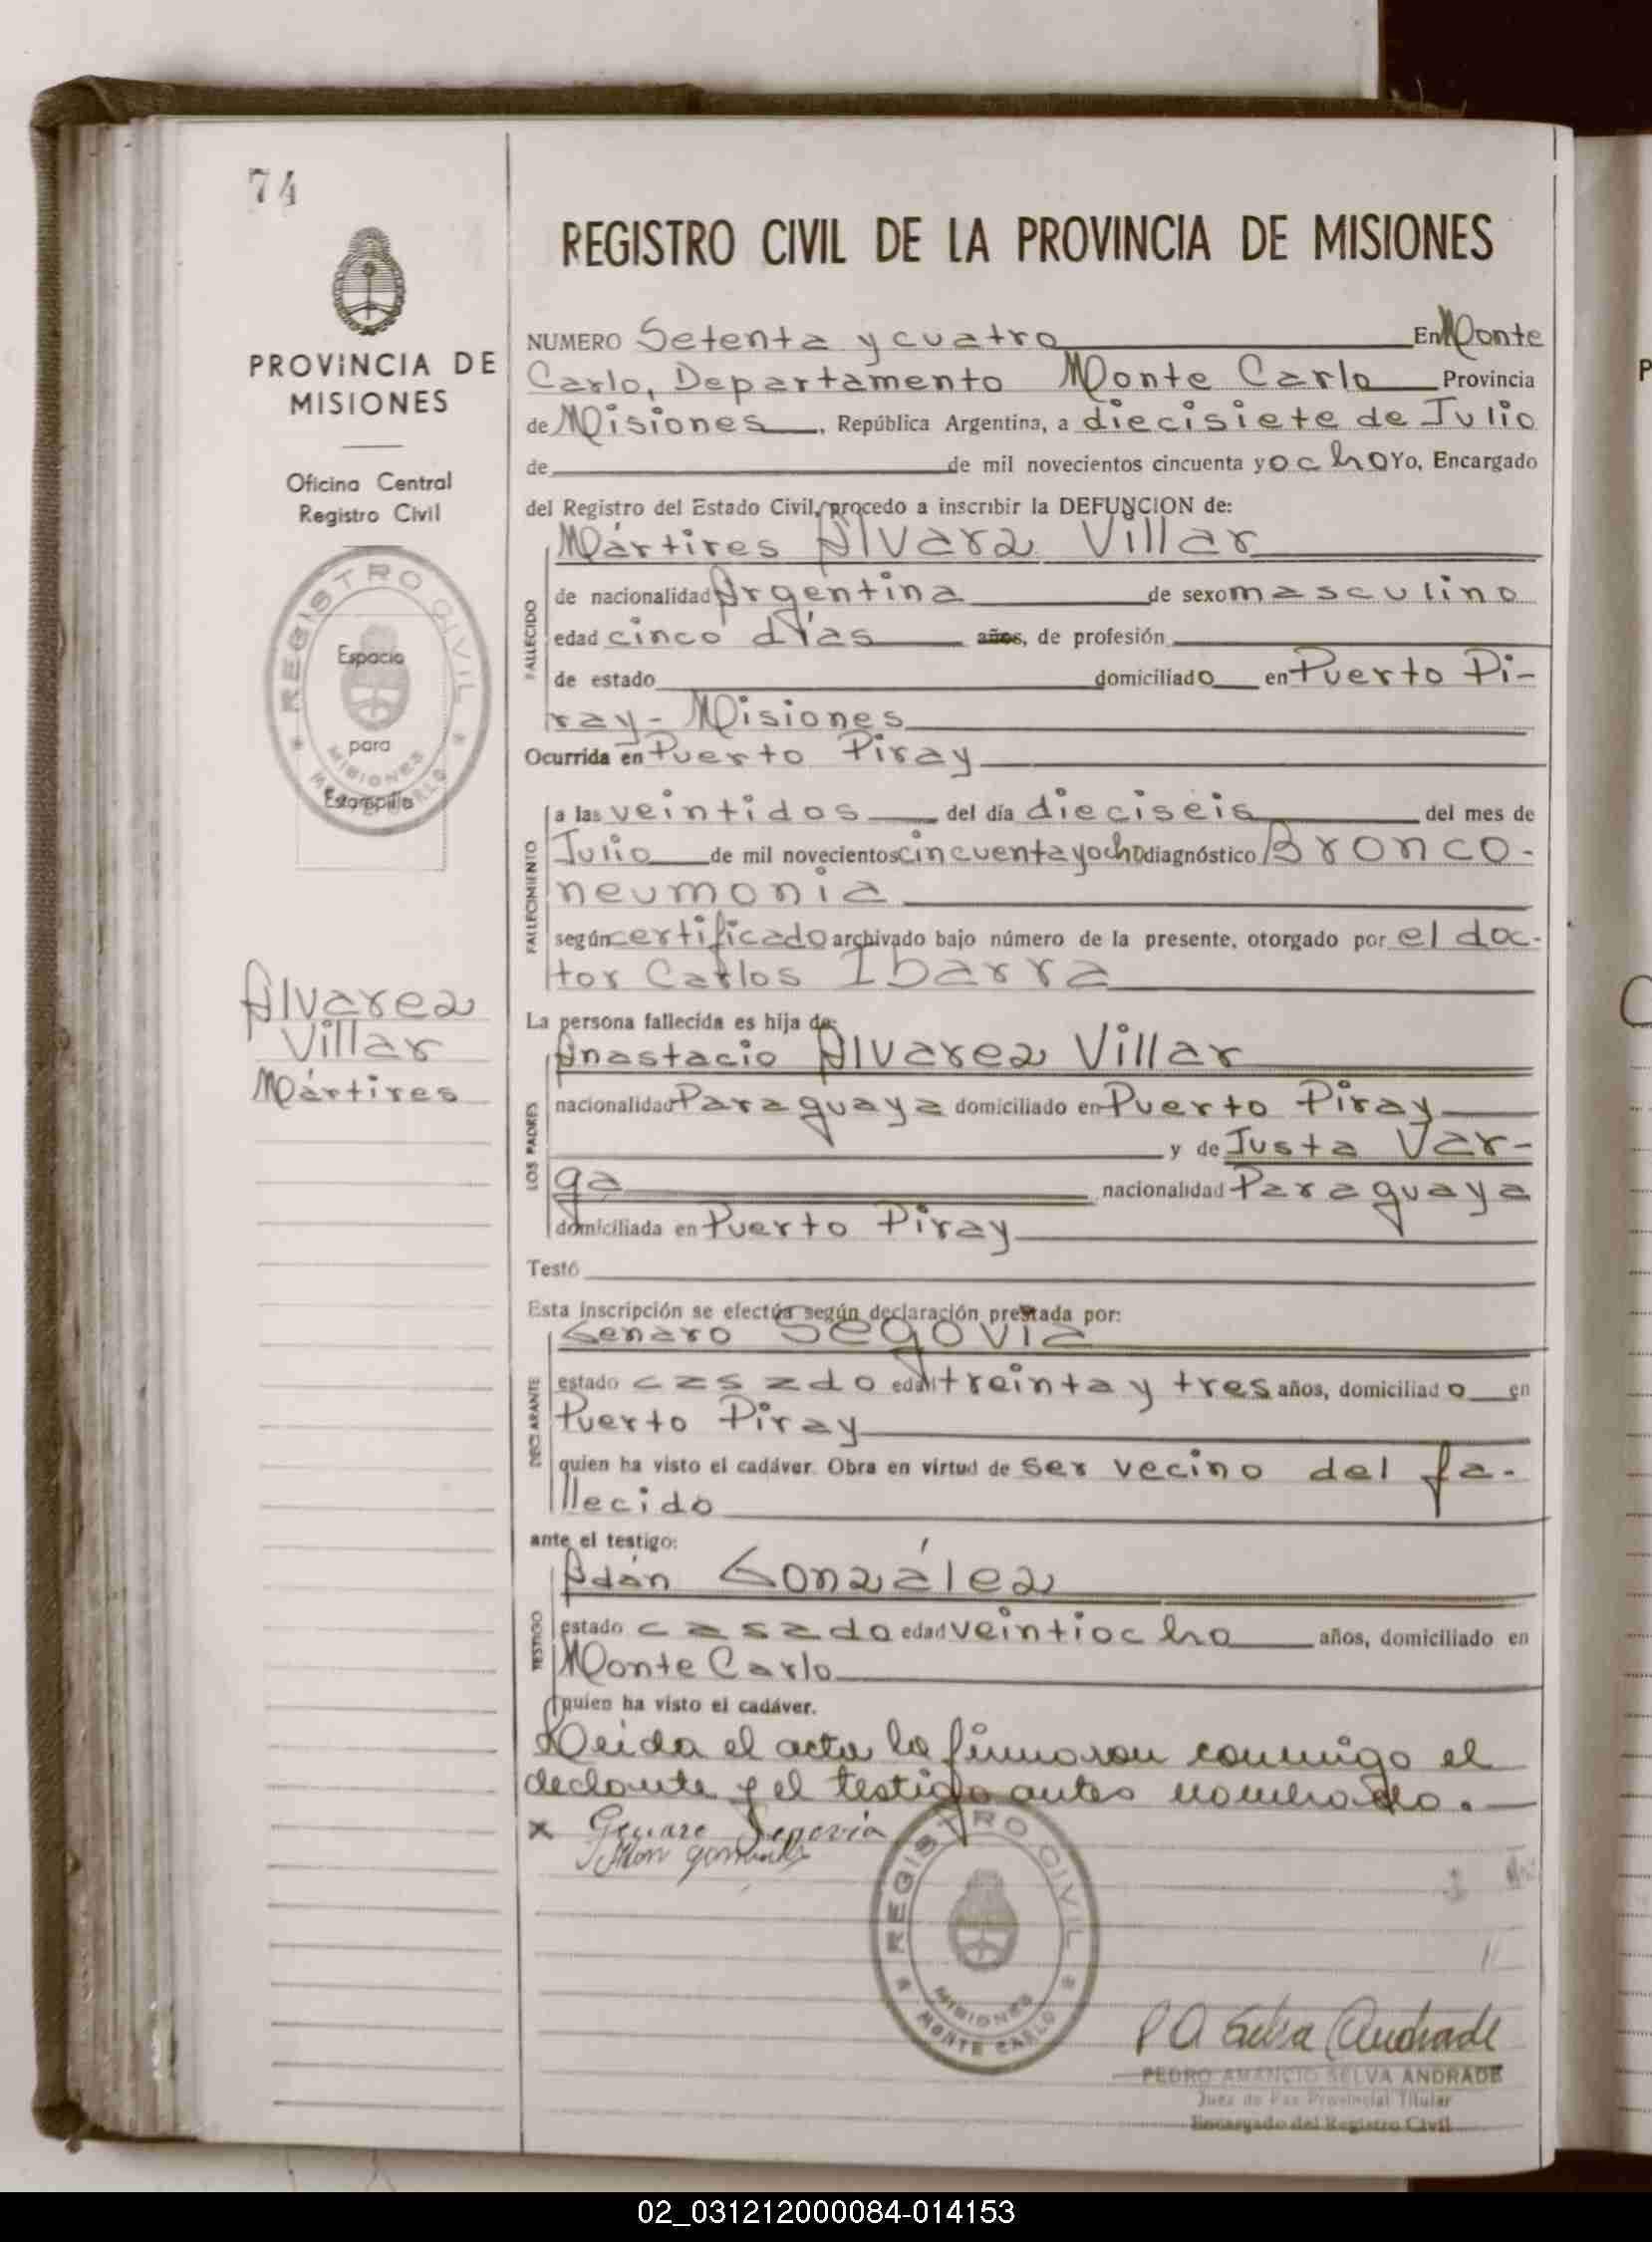 74
PROVINCIA DE
MISIONES
Oficina Central
Registro Civil
REGISTRO CIVIL
MISIONES
MONTE CARLO
Espacio
para
Estampilla
Alvarez
Villar
Mártires
REGISTRO CIVIL DE LA PROVINCIA DE MISIONES
NUMERO Setenta y cuatro En Monte
Carlo, Departamento Monte Carlo Provincia
de Misiones, República Argentina, a diecisiete de Julio
de de mil novecientos cincuenta y ocho Yo, Encargado
del Registro del Estado Civil, procedo a inscribir la DEFUNCION de:
FALLECIDO
Mártires Alvarz Villar
de nacionalidad Argentina de sexo masculino
edad cinco días años, de profesión
de estado domiciliado en Puerto Pi-
ray - Misiones
Ocurrida en Puerto Piray
FALLECIMIENTO
a las veintidos del día dieciseis del mes de
Julio de mil novecientos cincuenta y ocho diagnóstico Bronco-
neumonia
según certificado archivado bajo número de la presente, otorgado por el doc-
tor Carlos Ibarra
La persona fallecida es hija de:
LOS PADRES
Anastacio Alvarez Villar
nacionalidad Paraguaya domiciliado en Puerto Piray
y de Justa Var-
ga nacionalidad Paraguaya
domiciliada en Puerto Piray
Testó
Esta inscripción se efectúa según declaración prestada por:
DECLARANTE
Genaro Segovia
estado casado edad treinta y tres años, domiciliado en
Puerto Piray
quien ha visto el cadáver. Obra en virtud de ser vecino del fa-
llecido
ante el testigo:
TESTIGO
Adán González
estado casado edad veintiocho años, domiciliado en
Monte Carlo
quien ha visto el cadáver.
Leida el acta la firmaron conmigo el
declarante y el testigo antes nombrado.
x Genaro Segovia
REGISTRO CIVIL
MISIONES
MONTE CARLO
P A Selva Andrade
PEDRO AMANCIO SELVA ANDRADE
Juez de Paz Provincial Titular
Encargado del Registro Civil
02_031212000084-014153